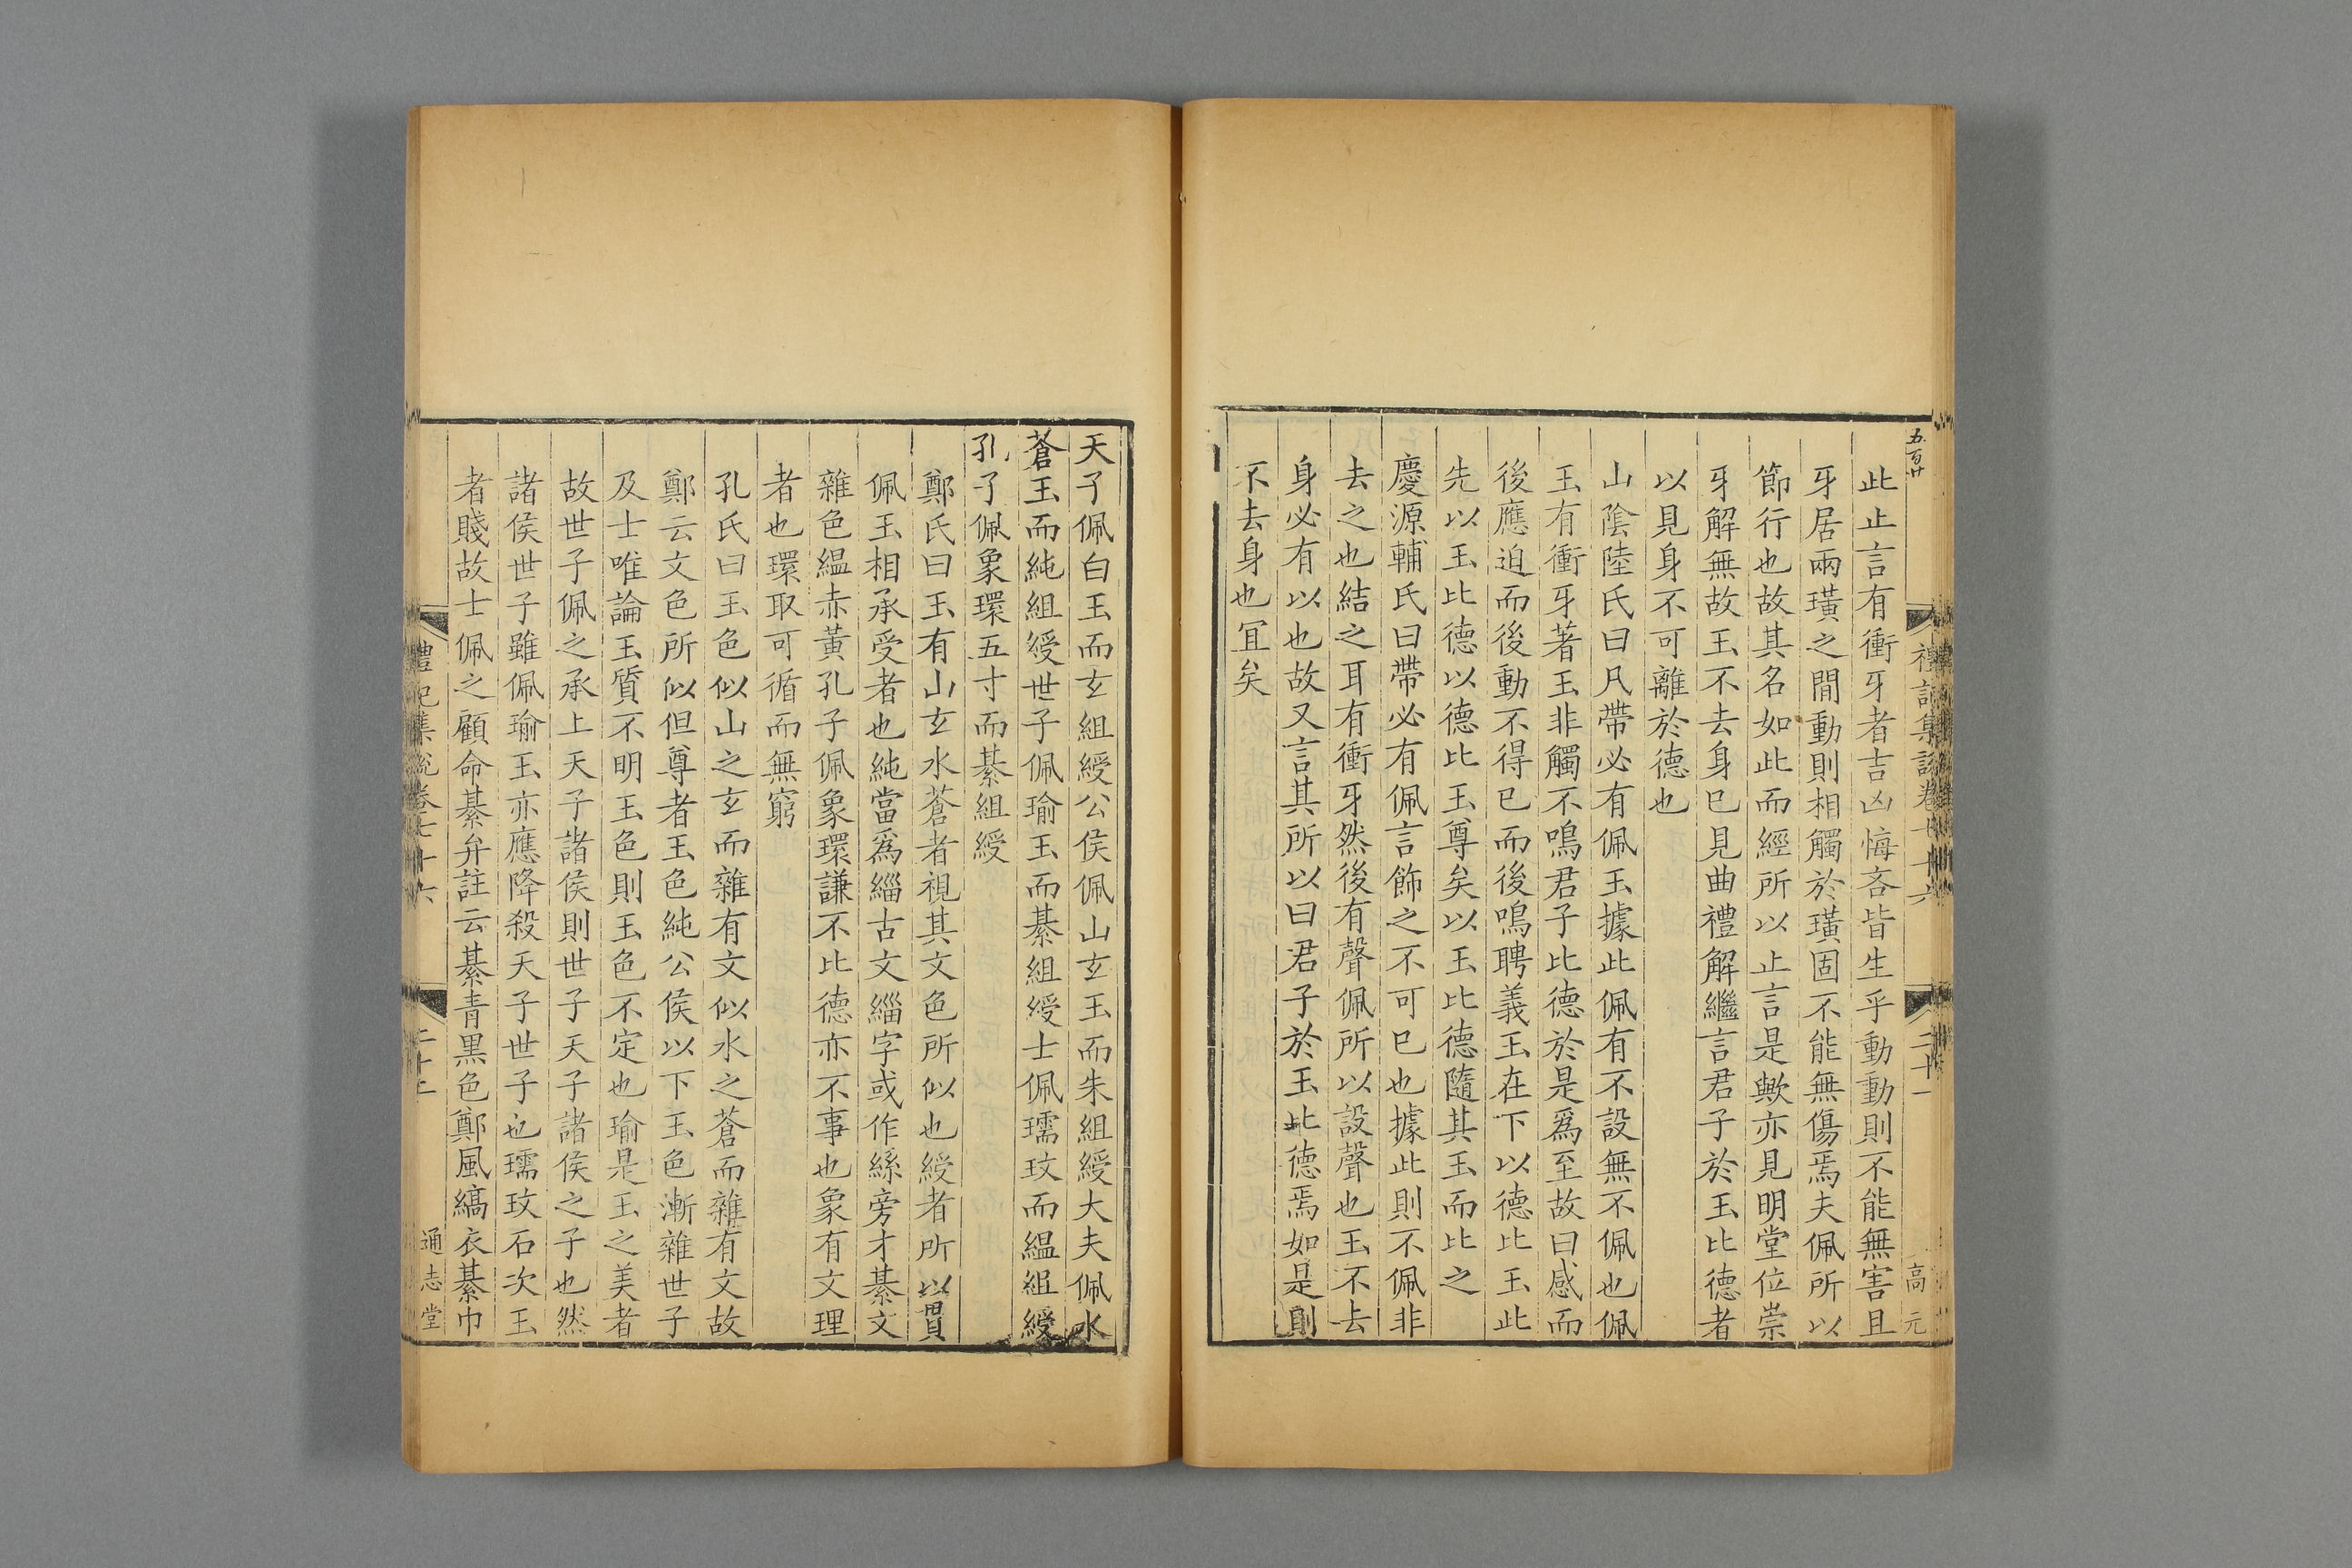 五百廿
禮記集說卷七十六
二十一
高元
此止言有衝牙者吉凶悔吝皆生乎動動則不能無害且
牙居兩璜之閒動則相觸於璜固不能無傷焉夫佩所以
節行也故其名如此而經所以止言是歟亦見明堂位崇
牙解無故玉不去身巳見曲禮解繼言君子於玉比德者
以見身不可離於德也
山陰陸氏曰凡帶必有佩玉據此佩有不設無不佩也佩
玉有衝牙著玉非觸不鳴君子比德於是爲至故曰感而
後應迫而後動不得巳而後鳴聘義玉在下以德比玉此
先以玉比德以德比玉尊矣以玉比德隨其玉而比之
慶源輔氏曰帶必有佩言飾之不可巳也據此則不佩非
去之也結之耳有衝牙然後有聲佩所以設聲也玉不去
身必有以也故又言其所以曰君子於玉比德焉如是則
不去身也冝矣
天子佩白玉而玄組綬公侯佩山玄玉而朱組綬大夫佩水
蒼玉而純組綬世子佩瑜玉而綦組綬士佩瓀玟而縕組綬
孔子佩象環五寸而綦組綬
鄭氏曰玉有山玄水蒼者視其文色所似也綬者所以貫
佩玉相承受者也純當爲緇古文緇字或作絲旁才綦文
雜色縕赤黃孔子佩象環謙不比德亦不事也象有文理
者也環取可循而無窮
孔氏曰玉色似山之玄而雜有文似水之蒼而雜有文故
鄭云文色所似但尊者玉色純公侯以下玉色漸雜世子
及士唯論玉質不明玉色則玉色不定也瑜是玉之美者
故世子佩之承上天子諸侯則世子天子諸侯之子也然
諸侯世子雖佩瑜玉亦應降殺天子世子也瓀玟石次玉
者賤故士佩之顧命綦弁註云綦青黒色鄭風縞衣綦巾
禮記集說卷七十六
二十二
通志堂